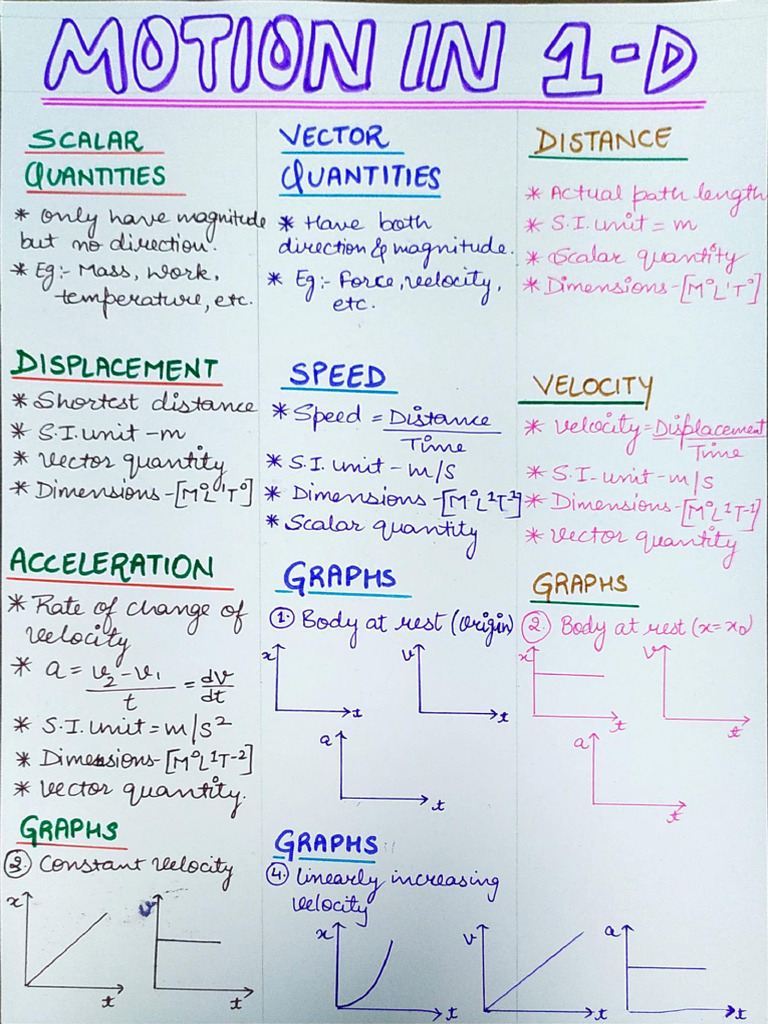 MOTION IN 1-D
SCALAR
QUANTITIES
* Only have magnitude
but no direction.
* Eg:- Mass, Work,
temperature, etc.
VECTOR
QUANTITIES
* Have both
direction & magnitude.
* Eg:- Force, velocity,
etc.
DISTANCE
* Actual path length
* S.I. unit = m
* Scalar quantity
* Dimensions-[M⁰L¹T⁰]
DISPLACEMENT
* Shortest distance
* S.I. unit - m
* Vector quantity
* Dimensions-[M⁰L¹T⁰]
SPEED
* Speed = Distance
Time
* S.I. unit - m/s
* Dimensions-[M⁰L¹T⁻¹]
* Scalar quantity
VELOCITY
* Velocity = Displacement
Time
* S.I. unit - m/s
* Dimensions-[M⁰L¹T⁻¹]
* Vector quantity
ACCELERATION
* Rate of change of
velocity
* a = v₂ - v₁ = dv
t dt
* S.I. unit = m/s²
* Dimensions-[M⁰L¹T⁻²]
* Vector quantity.
GRAPHS
① Body at rest (Origin)
x t
v t
a t
GRAPHS
② Body at rest (x = x₀)
x t
v t
a t
GRAPHS
③. Constant velocity
x t
v t
GRAPHS
④. linearly increasing
velocity
x t
v t
a t